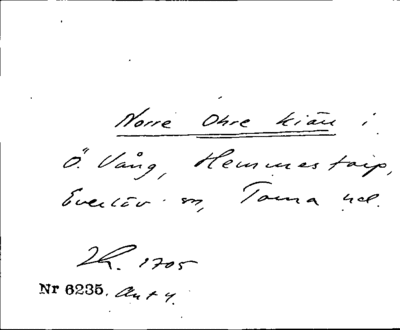 Norre Ohre kiäu i
Ö. Vång, Hemmestorp,
Everlöv sn, Torna hd.
Lh. 1705
Nr 6235. Ant 4.